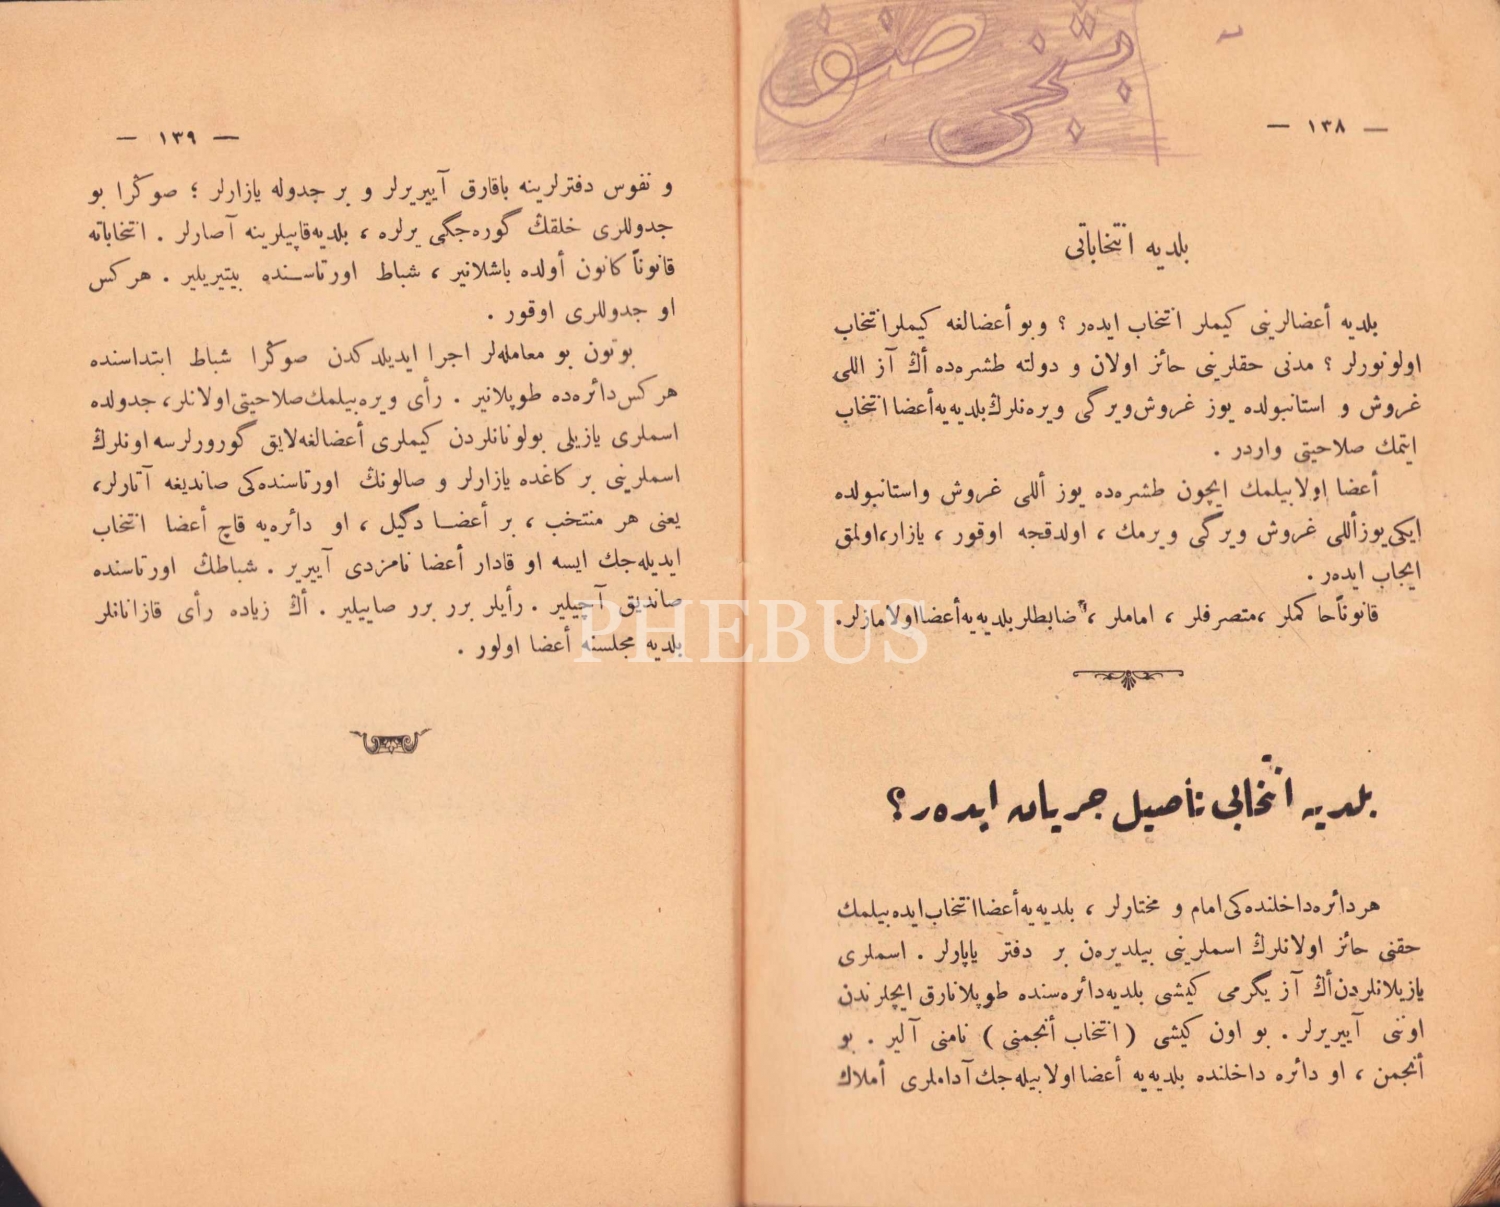 — ١٣٨ —
بلديه انتخاباتی
بلديه أعضالرينی كيملر انتخاب ايدەر ؟ وبو أعضالغه كيملرانتخاب
اولونورلر ؟ مدنی حقلرينی حائز اولان و دولته طشرەده أڭ آز اللی
غروش و استانبولده يوز غروش‌ويرگی ويرەنلرڭ‌بلديه‌يه‌أعضاانتخاب
ايتمك صلاحيتی واردر .
أعضا اولابيلمك ايچون طشرەده يوز أللی غروش واستانبولده
ايكی‌يوزأللی غروش ويرگی ويرمك ، اولدقجه اوقور ، يازار،اولمق
ايجاب ايدەر .
قانوناًحاكملر ،متصرفلر ، اماملر ، ضابطلربلديه‌يه‌أعضااولامازلر.
بلديه انتخابی ناصيل جريان ايدەر ؟
هردائره‌داخلنده‌كی‌امام و مختارلر ، بلديه‌يه‌أعضاانتخاب‌ايده‌بيلمك
حقنی حائز اولانلرڭ اسملرينی بيلديرەن بر دفتر ياپارلر . اسملری
يازيلانلردن‌أڭ آز يگرمی كيشی بلديه‌دائره‌سنده طوپلانارق ايچلرندن
اوننی آييريرلر . بو اون كيشی ( انتخاب أنجمنی ) نامنی آلير . بو
أنجمن ، او دائره داخلنده بلديه‌يه أعضااولابيله‌جك‌آداملری أملاك
— ١٣٩ —
و نفوس دفترلرينه باقارق آييريرلر و بر جدوله يازارلر ؛ صوڭرا بو
جدوللری خلقڭ گوره‌جگی يرلره ، بلديه‌قاپيلرينه آصارلر . انتخاباته
قانوناً كانون أولده باشلانير ، شباط اورتاسنده بيتيريلير . هركس
او جدوللری اوقور .
بوتون بو معامله‌لر اجرا ايديلدكدن صوڭرا شباط ابتداسنده
هركس‌دائره‌ده طوپلانير . رأی ويره‌بيلمك‌صلاحيتی‌اولانلر، جدولده
اسملری يازيلی بولونانلردن كيملری أعضالغه‌لايق گورورلرسه اونلرڭ
اسملرينی بر كاغده يازارلر و صالونڭ اورتاسنده‌كی صانديغه آتارلر،
يعنی هر منتخب ، بر أعضا دگيل ، او دائره‌يه قاچ أعضا انتخاب
ايديله‌جك ايسه او قادار أعضا نامزدی آييرير . شباطڭ اورتاسنده
صانديق آچيلير . رأيلر برر برر صاييلير . أڭ زياده رأی قازانانلر
بلديه مجلسنه أعضا اولور .
PHEBUS